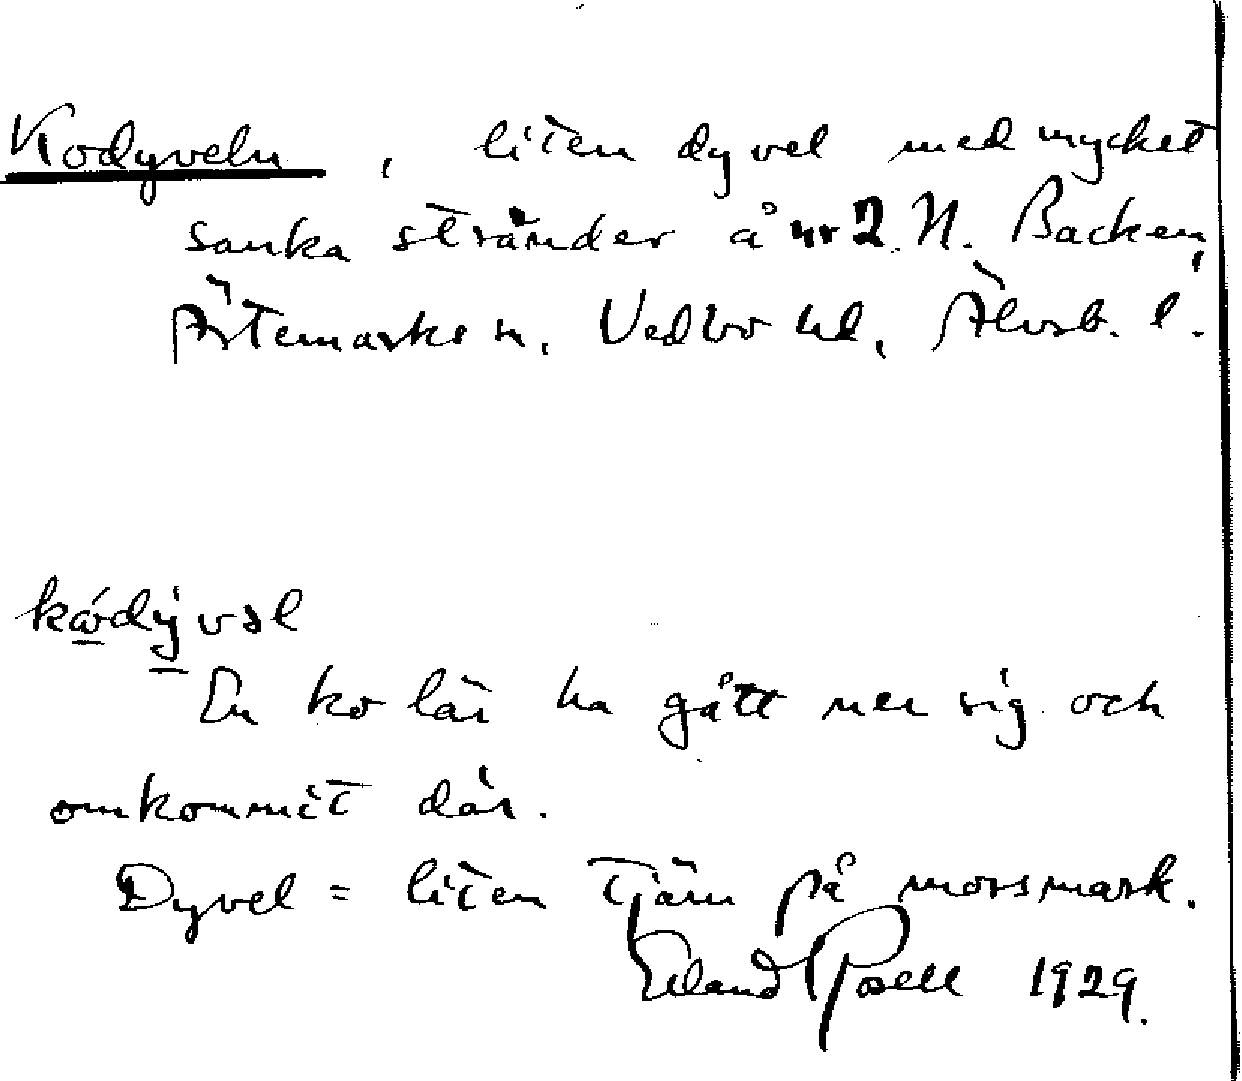 Kodyveln, liten dyvel med mycket
sanka stränder å nr 2 N. Backen,
Ärtemarks sn, Vedbo hd, Älvsb. l.
En ko lär ha gått ner sig och
omkommit där.
Dyvel = liten tjärn på mossmark.
Erland Rosell 1929.